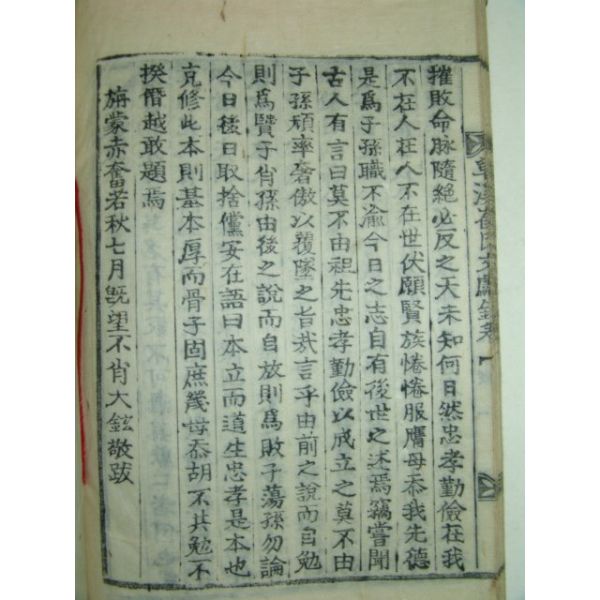 摧敗命脉隨絕必反之天未知何日然忠孝勤儉在我
不在人在人不在世伏願賢族惓惓服膺毋忝我先德
是爲子孫職不渝今日之志自有後世之述焉竊嘗聞
古人有言曰莫不由祖先忠孝勤儉以成立之莫不由
子孫頑率奢傲以覆墜之旨哉言乎由前之說而自勉
則爲賢子肖孫由後之說而自放則爲敗子蕩孫勿論
今日後日取捨儻安在語曰本立而道生忠孝是本也
克修此本則基本厚而骨子固庶幾毋忝胡不共勉不
揆僭越敢題焉
旃蒙赤奮若秋七月旣望不肖大鉉敬跋